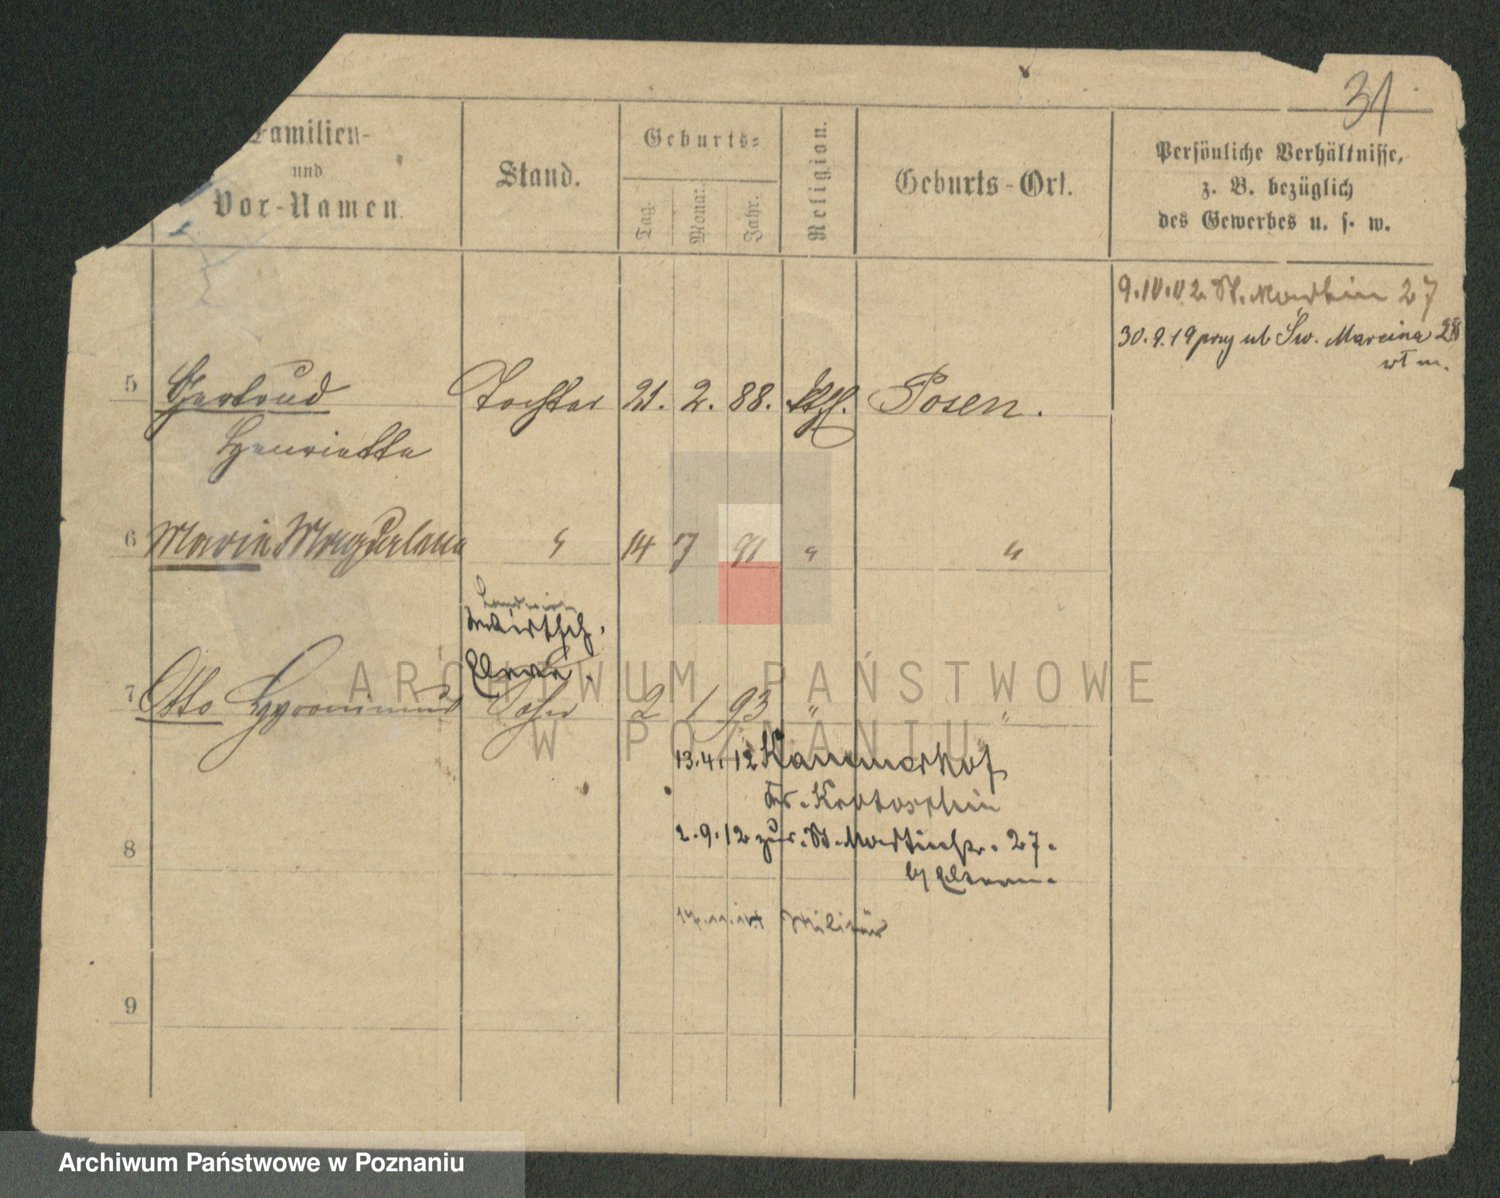 31
Familien-
und
Vor-Namen.
Stand.
Geburts-
Tag.
Monat.
Jahr.
Religion.
Geburts-Ort.
Persönliche Verhältnisse,
z. B. bezüglich
des Gewerbes u. s. w.
9.IV.02 St. Martin 27
30.9.19 przy ul Św. Marcina 28
5 Gertrud Tochter 21. 2. 88. Kath. Posen.
Henriette
6 Maria Magdalena " 14 7 91 " "
Wirtsch.
Eleve.
7 Otto Hyronimus Sohn 2 1 93 " "
13.4.12 Kammerhof
Kr. Krotoschin
2.9.12 zur. St. Martinstr. 27.
b/ Eltern.
8
Militär
9
ARCHIWUM PAŃSTWOWE
W POZNANIU
Archiwum Państwowe w Poznaniu